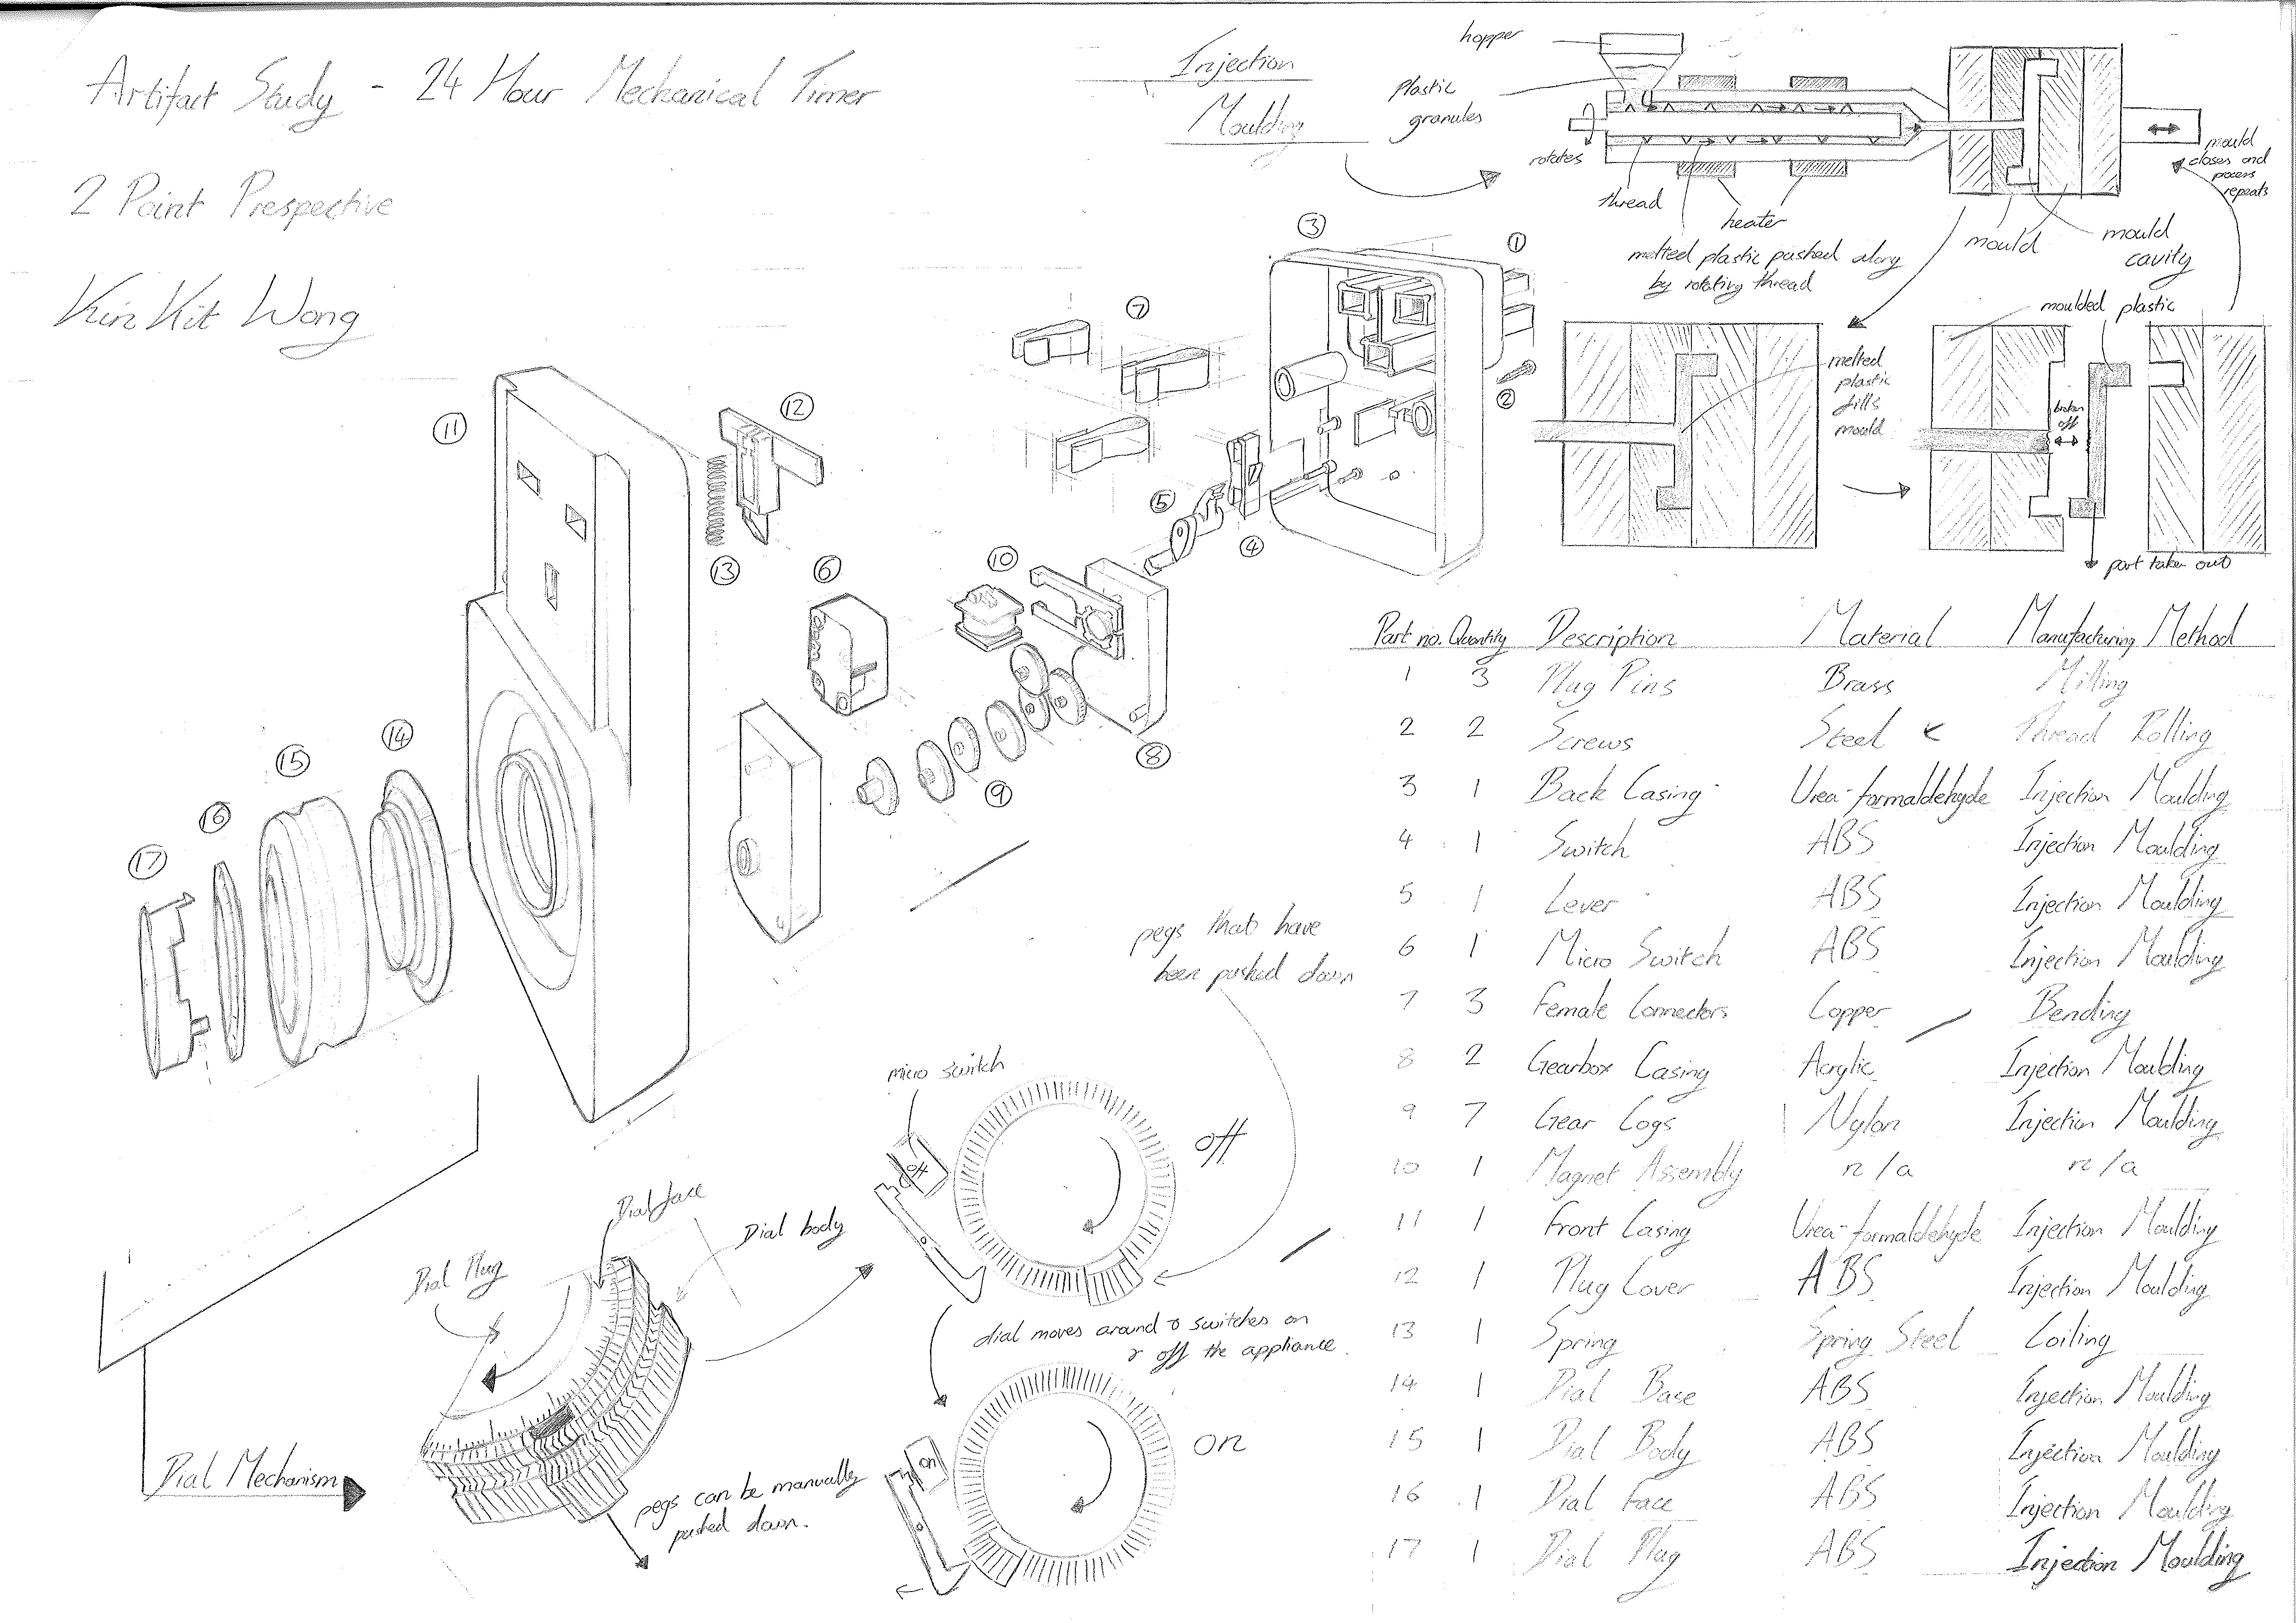 Artifact Study - 24 Hour Mechanical Timer
2 Point Prespective
Kin Kit Wong
Injection
Moulding
hopper
plastic
granules
rotates
thread
heater
melted plastic pushed along
by rotating thread
mould
mould
cavity
mould
closes and
process
repeats
melted
plastic
fills
mould
moulded plastic
broken
off
part taken out
1
2
3
4
5
6
7
8
9
10
11
12
13
14
15
16
17
Part no. Quantity Description Material Manufacturing Method
1 3 Plug Pins Brass Milling
2 2 Screws Steel Thread Rolling
3 1 Back Casing Urea-formaldehyde Injection Moulding
4 1 Switch ABS Injection Moulding
5 1 Lever ABS Injection Moulding
6 1 Micro Switch ABS Injection Moulding
7 3 Female Connectors Copper Bending
8 2 Gearbox Casing Acrylic Injection Moulding
9 7 Gear Cogs Nylon Injection Moulding
10 1 Magnet Assembly n/a n/a
11 1 Front Casing Urea-formaldehyde Injection Moulding
12 1 Plug Cover ABS Injection Moulding
13 1 Spring Spring Steel Coiling
14 1 Dial Base ABS Injection Moulding
15 1 Dial Body ABS Injection Moulding
16 1 Dial Face ABS Injection Moulding
17 1 Dial Plug ABS Injection Moulding
pegs that have
been pushed down
micro switch
off
off
dial moves around & switches on
& off the appliance.
on
on
Dial face
Dial body
Dial Plug
Dial Mechanism
pegs can be manually
pushed down.